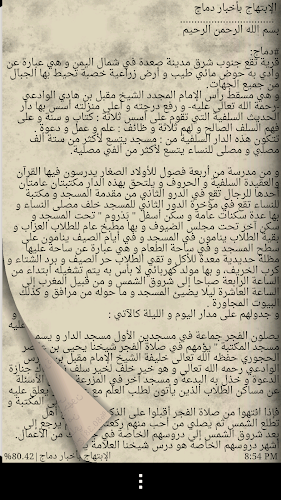 الإبتهاج بأخبار دماج
بسم الله الرحمن الرحيم
#دماج:
قرية تقع جنوب شرق مدينة صعدة في شمال اليمن و هي عبارة عن
وادي به حوض مائي طيب و أرض زراعية خصبة تحيط بها الجبال
من جميع الجهات.
و هي مسقط رأس الإمام المجدد الشيخ مقبل بن هادي الوادعي
-رحمة الله تعالى عليه- و رفع درجته و أعلى منزلته أسس بها دار
الحديث السلفية التي تقوم على أسس ثلاثة : كتاب و سنة و على
فهم السلف الصالح و لهم ثلاثة و ظائف : علم و عمل و دعوة .
تتكون هذه الدار السلفية من : مسجد يتسع لأكثر من ستة ألف
مصلي و مصلى للنساء يتسع لأكثر من ألفي مصلية.
و من مدرسة من أربعة فصول للأولاد الصغار يدرسون فيها القرآن
والعقيدة السلفية و الحروف و يلتحق بهذه الدار مكتبتان عامتان
أحدها للرجال تقع في الدرو الثاني من مقدمة المسجد و مكتبة
للنساء تقع في مؤخرة الدور الثاني للمسجد خلف مصلى النساء و
بها عدة سكنات عامة و سكن أسفل " بدروم " تحت المسجد و
سكن آخر تحت مجلس الضيوف و بها مطبخ عام للطلاب العزاب و
بقية الطلاب ينامون في المسجد و في أيام الصيف ينامون على
سطح المسجد و في ساحة الطعام و هي عبارة عن ساحة عليها
مظلة حديدية معدة للأكل و تقي الطلاب حر الصيف و برد الشتاء و
كرب الخريف، و بها مولد كهربائي لا بأس به يتم تشغيله ابتداء من
الساعة الرابعة صباحا إلى شروق الشمس و من قبيل المغرب إلى
الساعة العاشرة ليلا يضيئ المسجد و ما حوله من مرافق و كذلك
البيوت المجاورة .
و جدولهم على مدار اليوم و الليلة كالآتي :
عليه
يصلون الفجر جماعة في مسجدين الأول مسجد الدار و يسم
مسجد المكتبة و يؤمهم في صلاة الفجر شيخنا يحيى بن
الحجوري حفظه الله تعالى خليفة الشيخ الإمام مقبل بن
الوادعي رحمه الله تعالى و هو خير خلف لخير سلف
الدعوة و خذل به البدعة و مسجد آخر في المزرعة
عن مساكن الطلاب الذين يأتون لطلب العلم
فإذا انتهوا من صلاة الفجر أقبلوا على
تطلع الشمس ثم يصلي من أحب منهم
بعد شروق الشمس إلى دروسهم الخاصة
أشهر دروسهم الخاصة هو درس شيخنا العلامة
8:54 PM الإبتهاج بأخبار دماج | 80.42%